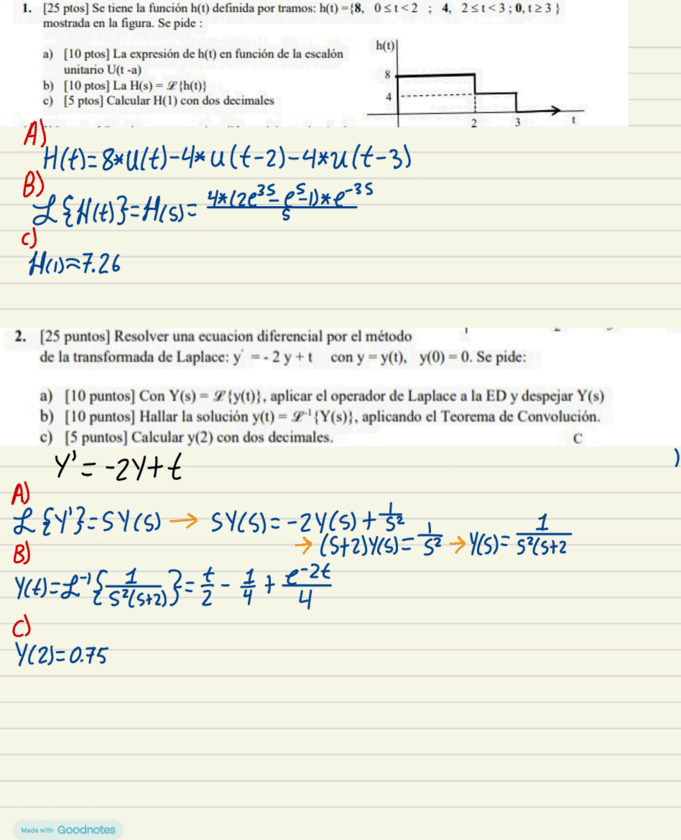 1. [25 ptos] Se tiene la función h(t) definida por tramos: h(t) ={8, 0 ≤ t < 2 ; 4, 2 ≤ t < 3 ; 0, t ≥ 3 }
mostrada en la figura. Se pide :
a) [10 ptos] La expresión de h(t) en función de la escalón
unitario U(t -a)
b) [10 ptos] La H(s) = ℒ {h(t)}
c) [5 ptos] Calcular H(1) con dos decimales
h(t)
8
4
2 3 t
A)
H(t)=8*U(t)-4*u(t-2)-4*u(t-3)
B)
ℒ{H(t)}=H(s)= 4*(2e^3s-e^s-1)*e^-3s / s
c)
H(1)≈7.26
2. [25 puntos] Resolver una ecuacion diferencial por el método
de la transformada de Laplace: y' = - 2 y + t con y = y(t), y(0) = 0. Se pide:
a) [10 puntos] Con Y(s) = ℒ {y(t)}, aplicar el operador de Laplace a la ED y despejar Y(s)
b) [10 puntos] Hallar la solución y(t) = ℒ⁻¹ {Y(s)}, aplicando el Teorema de Convolución.
c) [5 puntos] Calcular y(2) con dos decimales. C
Y'=-2Y+t
)
A)
ℒ{Y'}=SY(S) → SY(S)=-2Y(S)+1/S²
→ (S+2)Y(S)=1/S² → Y(S)=1/S²(S+2
B)
Y(t)=ℒ⁻¹{1/S²(S+2)}=t/2-1/4+e^-2t/4
C)
Y(2)=0.75
Made with Goodnotes